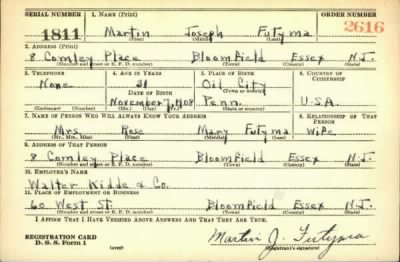 SERIAL NUMBER 1. NAME (Print) ORDER NUMBER
1811 Martin Joseph Futyma 2616
(First) (Middle) (Last)
2. ADDRESS (Print)
8 Comley Place Bloomfield Essex N.J.
(Number and street or R. F. D. number) (Town) (County) (State)
3. TELEPHONE 4. AGE IN YEARS 5. PLACE OF BIRTH 6. COUNTRY OF CITIZENSHIP
None 31 Oil City
DATE OF BIRTH (Town or county)
November 7, 1908 Penn. U.S.A.
(Exchange) (No.) (Mo.) (Day) (Yr.) (State or country)
7. NAME OF PERSON WHO WILL ALWAYS KNOW YOUR ADDRESS 8. RELATIONSHIP OF THAT PERSON
Mrs. Rose Mary Futyma Wife
(Mr., Mrs., Miss) (First) (Middle) (Last)
9. ADDRESS OF THAT PERSON
8 Comley Place Bloomfield Essex N.J.
(Number and street or R. F. D. number) (Town) (County) (State)
10. EMPLOYER'S NAME
Walter Kidde & Co.
11. PLACE OF EMPLOYMENT OR BUSINESS
60 West St. Bloomfield Essex N.J.
(Number and street or R. F. D. number) (Town) (County) (State)
I AFFIRM THAT I HAVE VERIFIED ABOVE ANSWERS AND THAT THEY ARE TRUE.
REGISTRATION CARD
D. S. S. Form 1 (over) Martin J. Futyma
(Registrant's signature)